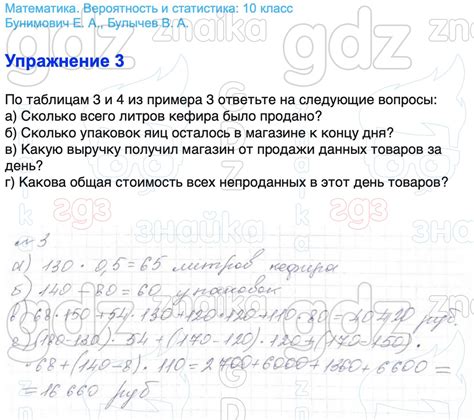 Математика. Вероятность и статистика: 10 класс
Бунимович Е. А., Булычев В. А.
Упражнение 3
По таблицам 3 и 4 из примера 3 ответьте на следующие вопросы:
а) Сколько всего литров кефира было продано?
б) Сколько упаковок яиц осталось в магазине к концу дня?
в) Какую выручку получил магазин от продажи данных товаров за
день?
г) Какова общая стоимость всех непроданных в этот день товаров?
№ 3
а) 130 · 0,5 = 65 литров кефира
б) 140 - 80 = 60 упаковок
в) 68 · 150 + 54 · 130 + 120 · 120 + 110 · 80 = 40 420 руб.
г) (180-130) · 54 + (170 - 120) · 120 + (170 - 150) ·
· 68 + (140 - 8) · 110 = 2700 + 6000 + 1360 + 6600 =
= 16 660 руб
gdz
znaika
гдз
знайка